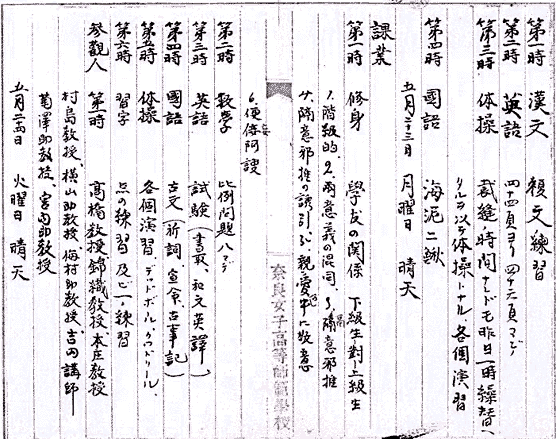 第一時 漢文 複文練習
第二時 英語 四十四頁ヨリ四十六頁マデ
第三時 体操 裁縫ノ時間ナレドモ昨日一時繰替ヘ
タルヲ以テ体操トナル、各個演習
第四時 國語 海泥ニ鰍
五月二十三日 月曜日 晴天
課業
第一時 修身 學友の関係 下級生對上級生
1.階級的、2.兩意義の混同、3.隔意邪推
4.隔意邪推の誘引、5.親愛中に敬意
奈良女子高等師範學校
6.便侫阿諛
第二時 数学 比例問題八マデ
第三時 英語 試験(書取、和文英譯)
第四時 國語 古文(祈詞、宣命、古事記)
第五時 体操 各個演習、デッドボール、クワドリール、
第六時 習字 点の練習及ビ一ノ練習
参観人 第一時 高橋教授錦織教授本庄教授
村島教授、横山助教授、梅村助教授、吉内講師
菊澤助教授、宮内助教授
五月二十四日 火曜日 晴天